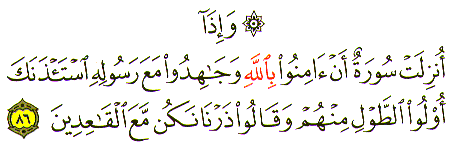 ۞ وَإِذَآ
أُنزِلَتْ سُورَةٌ أَنْ ءَامِنُوا۟ بِٱللَّهِ وَجَـٰهِدُوا۟ مَعَ رَسُولِهِ ٱسْتَـْٔذَنَكَ
أُو۟لُوا۟ ٱلطَّوْلِ مِنْهُمْ وَقَالُوا۟ ذَرْنَا نَكُن مَّعَ ٱلْقَـٰعِدِينَ ٨٦